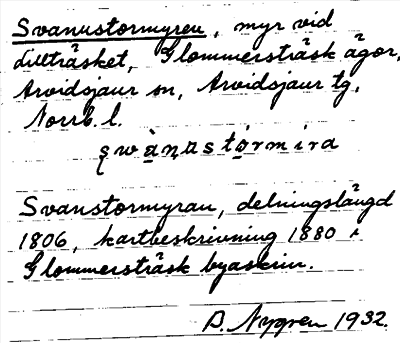 Svanustormyren, myr vid
Lillträsket, Glommersträsk ägor,
Arvidsjaur sn, Arvidsjaur tg,
Norrb. l.
Svanustormyran, delningslängd
1806, kartbeskrivning 1880 i
Glommersträsk byaskrin.
D. Nygren 1932.